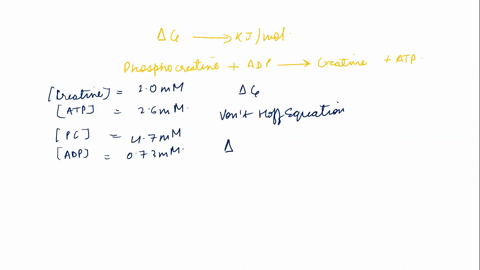 ΔG ⟶ KJ/mol.
Phosphocreatine + ADP ⟶ Creatine + ATP.
[Creatine] = 1.0 mM ΔG
[ATP] = 2.6 mM. Von't Hoff Equation
[PC] = 4.7 mM
[ADP] = 0.73 mM. Δ